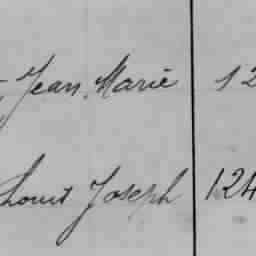 Jean Marie 12
Joseph 124